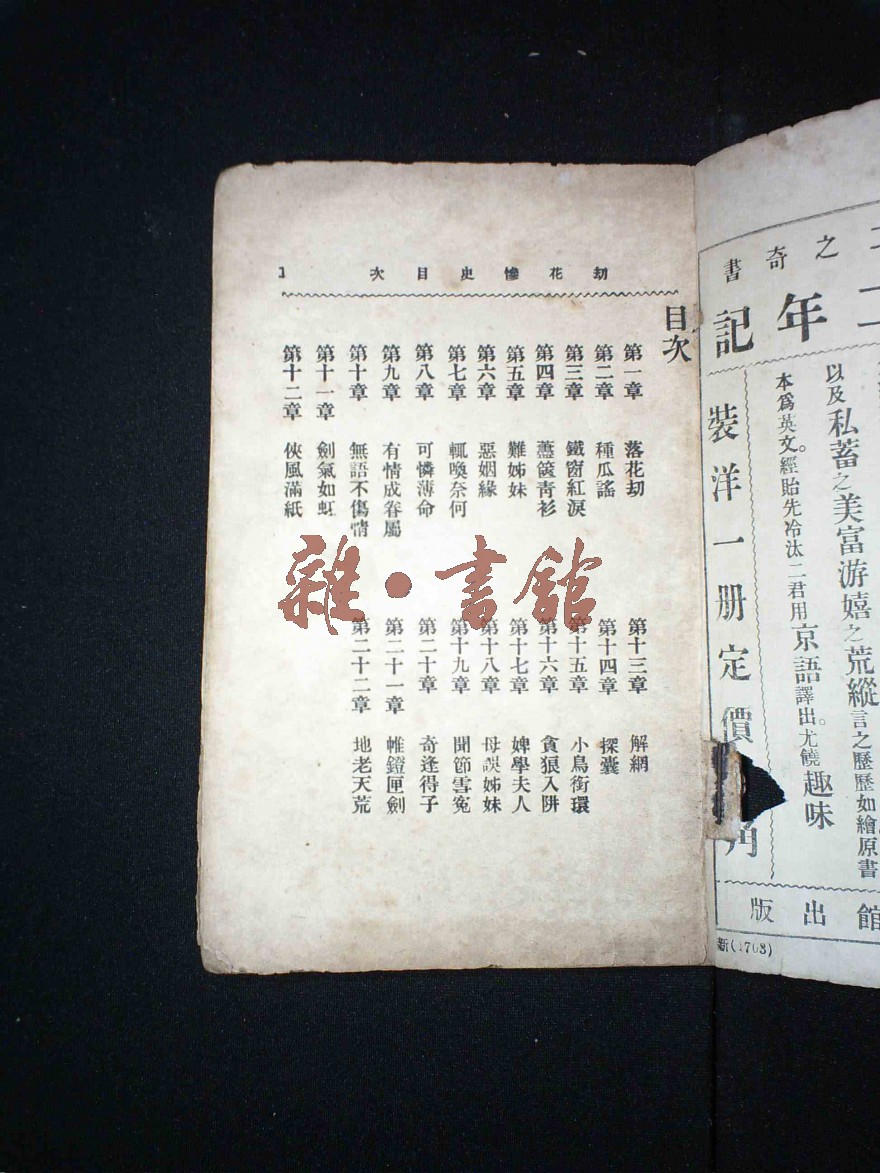 劫花慘史目次
1
目次
第一章 落花劫
第二章 種瓜謠
第三章 鐵窗紅淚
第四章 薰篋青衫
第五章 難姊妹
第六章 惡姻緣
第七章 輒喚奈何
第八章 可憐薄命
第九章 有情成眷屬
第十章 無語不傷情
第十一章 劍氣如虹
第十二章 俠風滿紙
第十三章 解網
第十四章 探囊
第十五章 小鳥銜環
第十六章 貪狼入阱
第十七章 婢學夫人
第十八章 母誤姊妹
第十九章 聞節雪寃
第二十章 奇逢得子
第二十一章 帷鐙匣劍
第二十二章 地老天荒
雜·書館
之奇書
年記
以及私蓄之美富游嬉之荒縱言之歷歷如繪原書
本爲英文。經貽先冷汰二君用京語譯出。尤饒趣味
裝洋一册定價
角
館出版
新(1703)